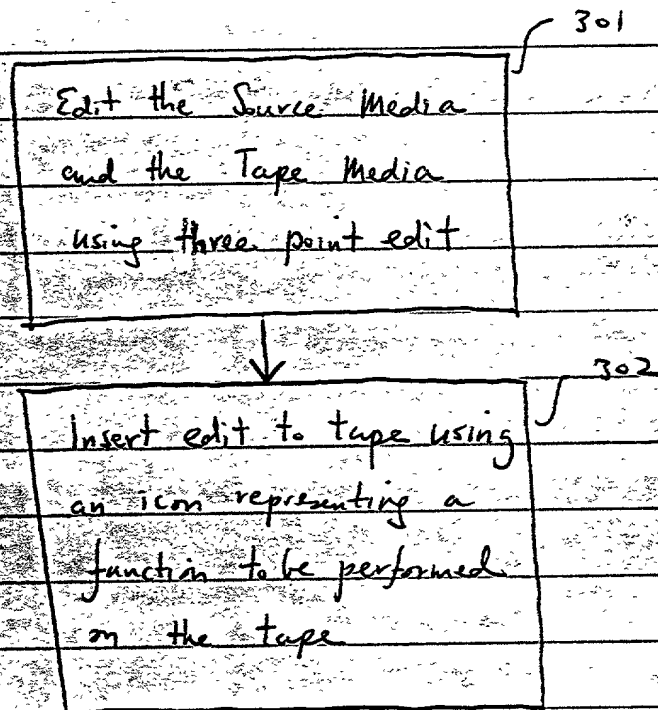 301
Edit the Source Media
and the Tape Media
using three point edit
302
Insert edit to tape using
an icon representing a
function to be performed
on the tape